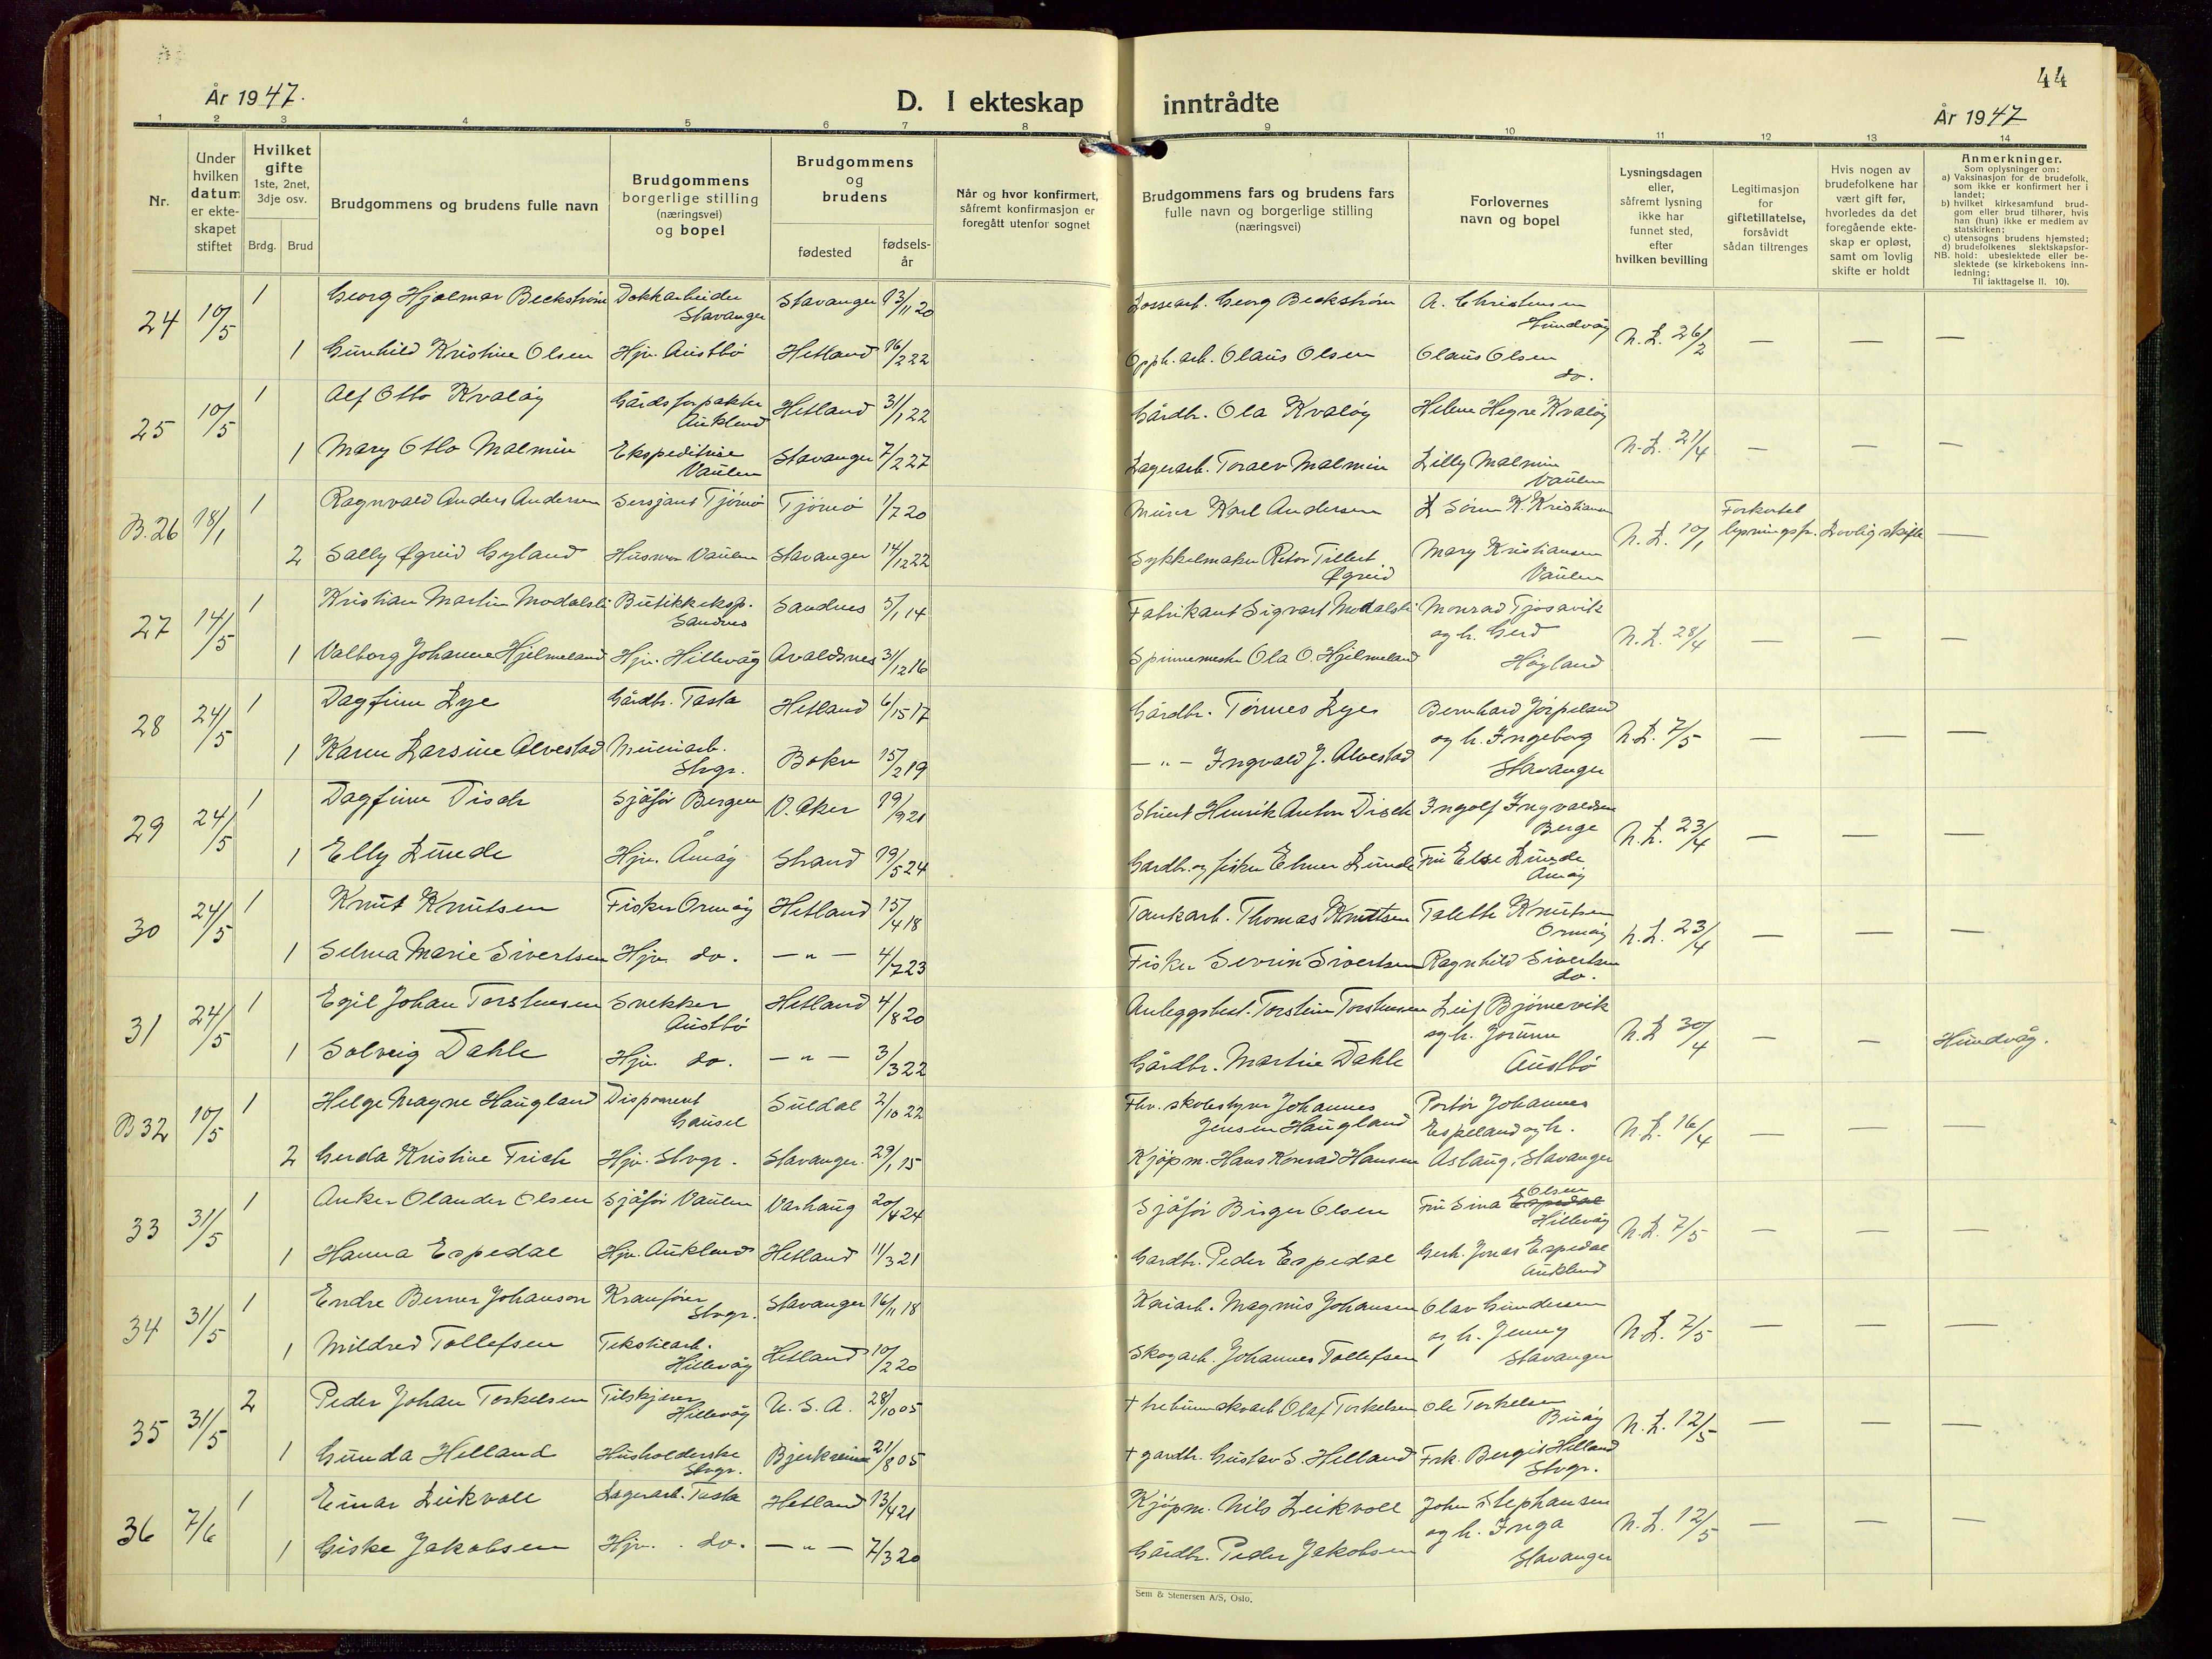 44
År 1947.
D. I ekteskap inntrådte
År 1947
1 2 3 4 5 6 7 8 9 10 11 12 13 14
Nr.
Under hvilken datum er ekteskapet stiftet
Hvilket gifte
1ste, 2net, 3dje osv.
Brdg. Brud
Brudgommens og brudens fulle navn
Brudgommens borgerlige stilling (næringsvei) og bopel
Brudgommens og brudens
fødested
fødsels-år
Når og hvor konfirmert, såfremt konfirmasjon er foregått utenfor sognet
Brudgommens fars og brudens fars fulle navn og borgerlige stilling (næringsvei)
Forlovernes navn og bopel
Lysningsdagen eller, såfremt lysning ikke har funnet sted, efter hvilken bevilling
Legitimasjon for giftetillatelse, forsåvidt sådan tiltrenges
Hvis nogen av brudefolkene har vært gift før, hvorledes da det foregående ekteskap er opløst, samt om lovlig skifte er holdt
Anmerkninger.
Som oplysninger om:
a) Vaksinasjon for de brudefolk, som ikke er konfirmert her i landet;
b) hvilket kirkesamfund brudgom eller brud tilhører, hvis han (hun) ikke er medlem av statskirken;
c) utensogns brudens hjemsted;
d) brudefolkenes slektskapsforhold: ubeslektede eller beslektede (se kirkebokens innledning;
NB.
Til iakttagelse II. 10).
24 10/5 1 Georg Hjalmar Beckström Dokkarbeider Stavanger Stavanger 13/11 20 Lossearb. Georg Beckström A. Christensen Hundvåg N.L. 26/2 — — —
1 Gunhild Kristine Olsen Hjv. Austbö Hetland 16/2 22 Opph. arb. Olaus Olsen Olaus Olsen do.
25 10/5 1 Alf Otto Kvalöy Gårdsforpakter Auklend Hetland 31/1 22 Gårdbr. Ola Kvalöy Helene Hegre Kvalöy N.L. 21/4 — — —
1 Mary Otto Malmin Ekspeditrise Vaulen Stavanger 7/2 27 Lagerarb. Toralv Malmin Lilly Malmin Vaulen
B.26 18/1 1 Ragnvald Anders Andersen Sersjant Tjömö Tjömö 1/7 20 Murer Karl Andersen Sören K. Kristiansen N.L. 10/1 Forkortet lysningsfr. Lovlig skifte —
2 Sally Øgreid Gyland Husmor Vaulen Stavanger 14/12 22 Sykkelmaker Peter Tillert Øgreid Mary Kristiansen Vaulen
27 14/5 1 Kristian Martin Modalsli Butikkeksp. Sandnes Sandnes 5/1 14 Fabrikant Sigvart Modalsli Monrad Tjosavik og h. Gerd Höyland N.L. 28/4 — — —
1 Valborg Johanne Hjelmeland Hjv. Hillevåg Avaldsnes 31/12 16 Spinnemester Ola O. Hjelmeland
28 24/5 1 Dagfinn Lye Gårdbr. Tasta Hetland 6/15 17 Gårdbr. Tönnes Lye Bernhard Jörpeland og h. Ingeborg Stavanger N.L. 7/5 — — —
1 Karen Larsine Alvestad Stvgr. Bokn 15/2 19 — " — Ingvald J. Alvestad
29 24/5 1 Dagfinn Disch Sjåför Bergen V. Aker 19/9 21 Henrik Anton Disch Ingolf Ingvaldsen Berge N.L. 23/4 — — —
1 Elly Lunde Hjv. Åmöy Strand 19/5 24 Gardbr. og fisker Elmer Lunde Fru Else Lunde Åmöy
30 24/5 1 Knut Knutsen Fisker Ormöy Hetland 15/4 18 Tankarb. Thomas Knutsen Talette Knutsen Ormöy N.L. 23/4 — — —
1 Selma Marie Sivertsen Hjv. do. — " — 4/7 23 Fisker Severin Sivertsen Ragnhild Sivertsen do.
31 24/5 1 Egil Johan Torstensen Snekker Austbö Hetland 4/8 20 Anleggsbest. Torstein Torstensen Leif Björnevik og h. Jorunn Austbö N.L. 30/4 — — Hundvåg.
1 Solveig Dahle Hjv. do. — " — 3/3 22 Gårdbr. Martin Dahle
B 32 10/5 1 Helge Magne Haugland Disponent Gausel Suldal 2/10 22 Fhv. skolestyrer Johannes Jensen Haugland Portör Johannes Espeland og h. Aslaug, Stavanger N.L. 16/4 — — —
2 Gerda Kristine Frich Hjv. Stvgr. Stavanger. 29/1 15 Kjöpm. Hans Konrad Hansen
33 31/5 1 Anker Olander Olsen Sjåför Vaulen Varhaug 20/4 24 Sjåför Birger Olsen Fru Sina Espedal Olsen Hillevåg N.L. 7/5 — — —
1 Hanna Espedal Hjv. Auklend Hetland 11/3 21 Gardbr. Peder Espedal Jonas Espedal Auklend
34 31/5 1 Endre Berner Johanson Kranförer Stvgr. Stavanger 16/11 18 Kaiarb. Magnus Johansen Olav Gundersen og h. Jenny Stavanger N.L. 7/5 — — —
1 Mildred Tollefsen Tekstilarb. Hillevåg Hetland 10/2 20 Skogarb. Johannes Tollefsen
35 31/5 2 Peder Johan Torkelsen Tilskjærer Hillevåg U.S.A. 28/10 05 Olaf Torkelsen Ole Torkelsen Buöy N.L. 12/5 — — —
1 Gunda Helland Husholderske Stvgr. Bjerkreim 21/8 05 † gardbr. Gustav S. Helland Frk. Bergit Helland Stvgr.
36 7/6 1 Einar Leikvoll Lagerarb. Tasta Hetland 13/4 21 Kjöpm. Nils Leikvoll John Stephansen og h. Inga Stavanger N.L. 12/5 — — —
1 Giske Jakobsen Hjv. do. — " — 7/3 20 Gårdbr. Peder Jakobsen
Sem & Stenersen A/S, Oslo.